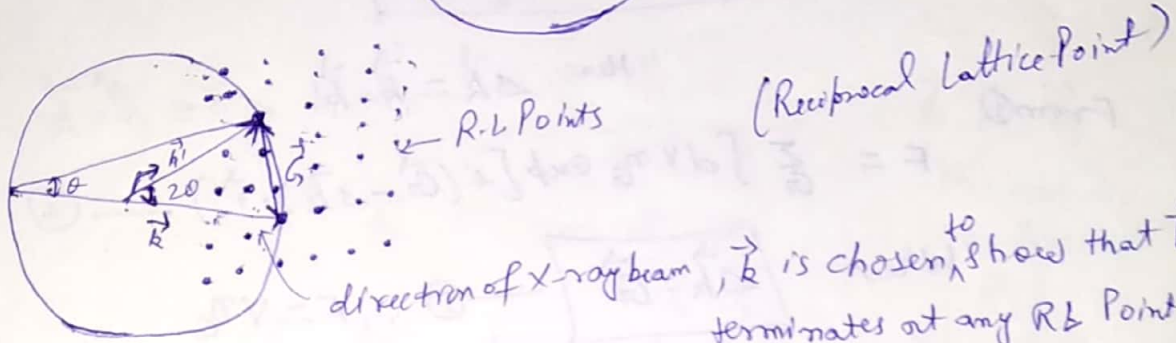 (Reciprocal Lattice Point)
R.L Points
G⃗
k⃗'
θ
2θ
k⃗
direction of X-ray beam, k⃗ is chosen to show that
terminates at any RL Point